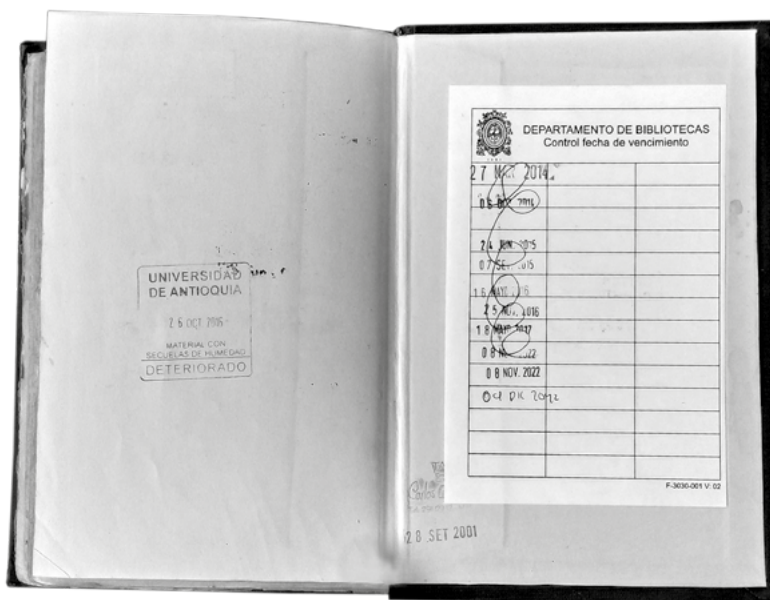 UNIVERSIDAD
DE ANTIOQUIA
26 OCT 2015
MATERIAL CON
SECUELAS DE HUMEDAD
DETERIORADO
DEPARTAMENTO DE BIBLIOTECAS
Control fecha de vencimiento
27 2014
06 2014
24 JUN. 2015
07 SET. 2015
16 MAYO 2016
25 NOV. 2016
18 MAYO 2017
08 2022
08 NOV. 2022
09 DIC 2022
F-3030-001 V: 02
28 SET 2001